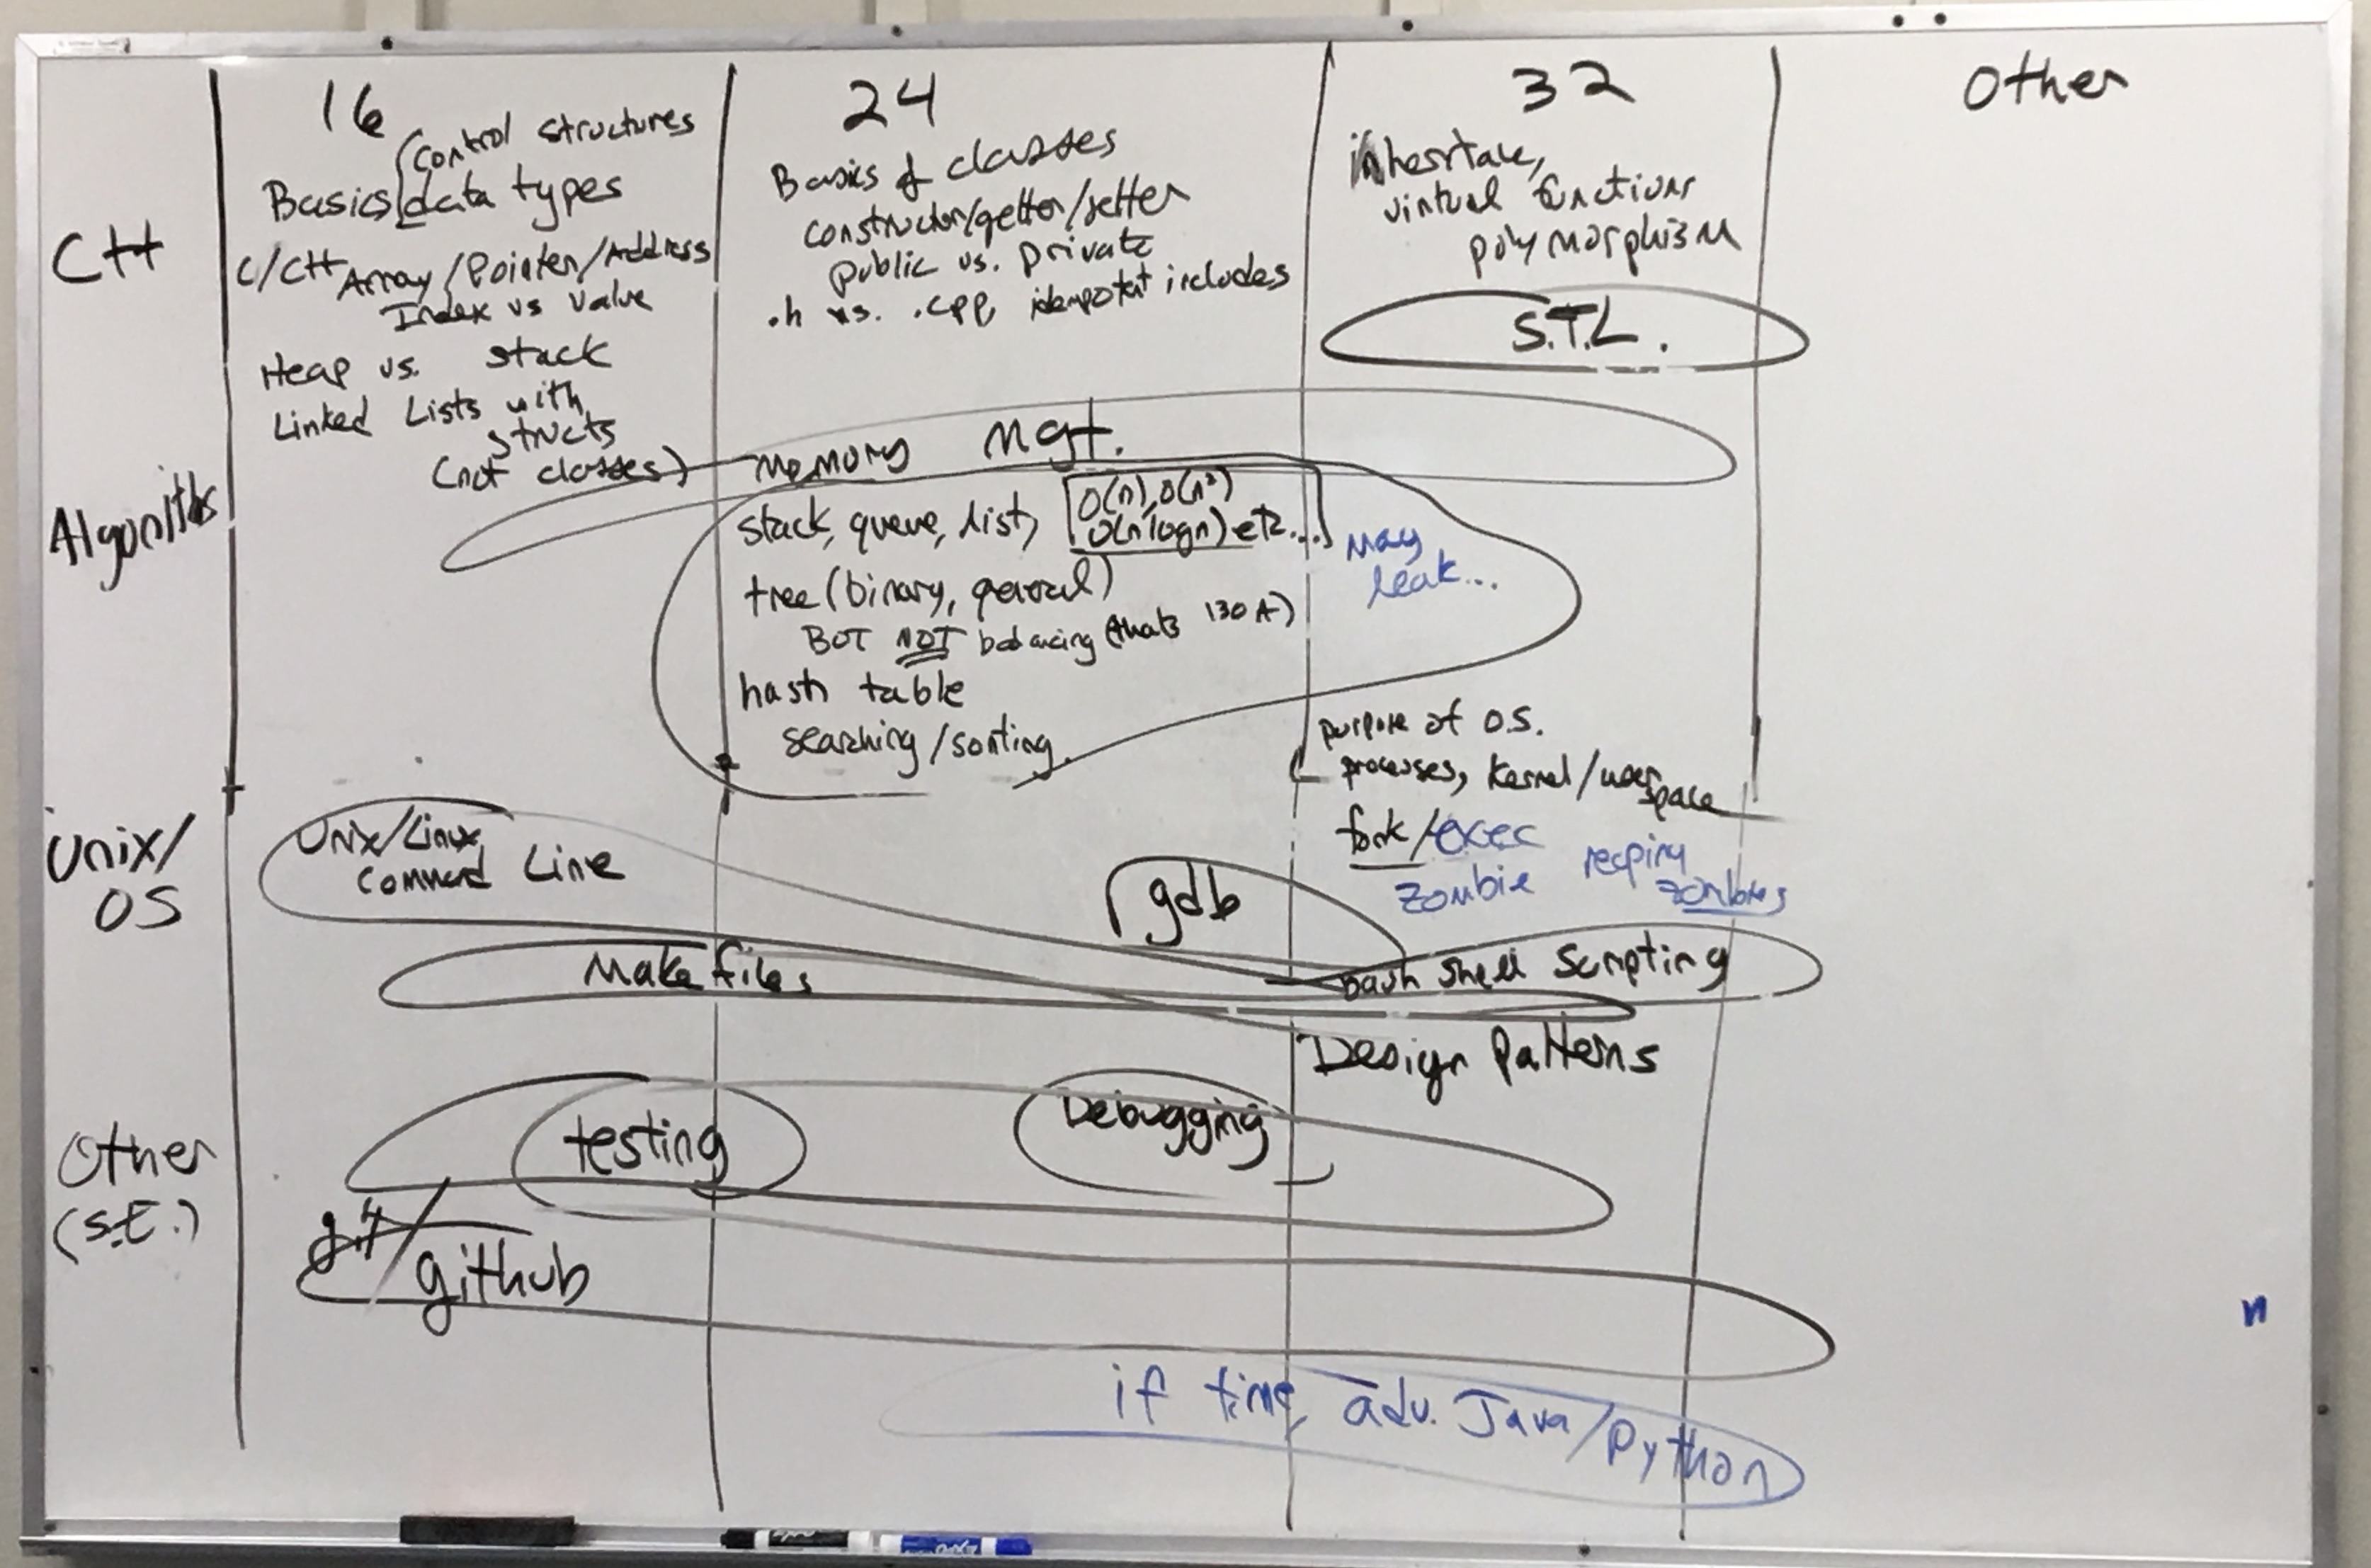 16
24
32
Other
C++
Basics
Control structures
data types
C/C++ Array/Pointer/Address
Index vs value
Heap vs. stack
Linked Lists with
structs
(not classes)
Basics of classes
constructor/getter/setter
public vs. private
.h vs. .cpp idempotent includes
virtual functions
polymorphism
S.T.L.
memory mgt.
stack, queue, list,
O(n), O(n²)
O(n logn) etc...
tree (binary, general)
BUT NOT balancing (thats 130A)
hash table
searching/sorting
May
leak...
Unix/
OS
Unix/Linux
Command Line
Makefiles
gdb
purpose of O.S.
processes, kernel/user
space
fork/exec
zombie
reaping
zombies
bash shell scripting
Design Patterns
Other
(S.E.)
testing
Debugging
git/
github
if time, adv. Java/Python
n